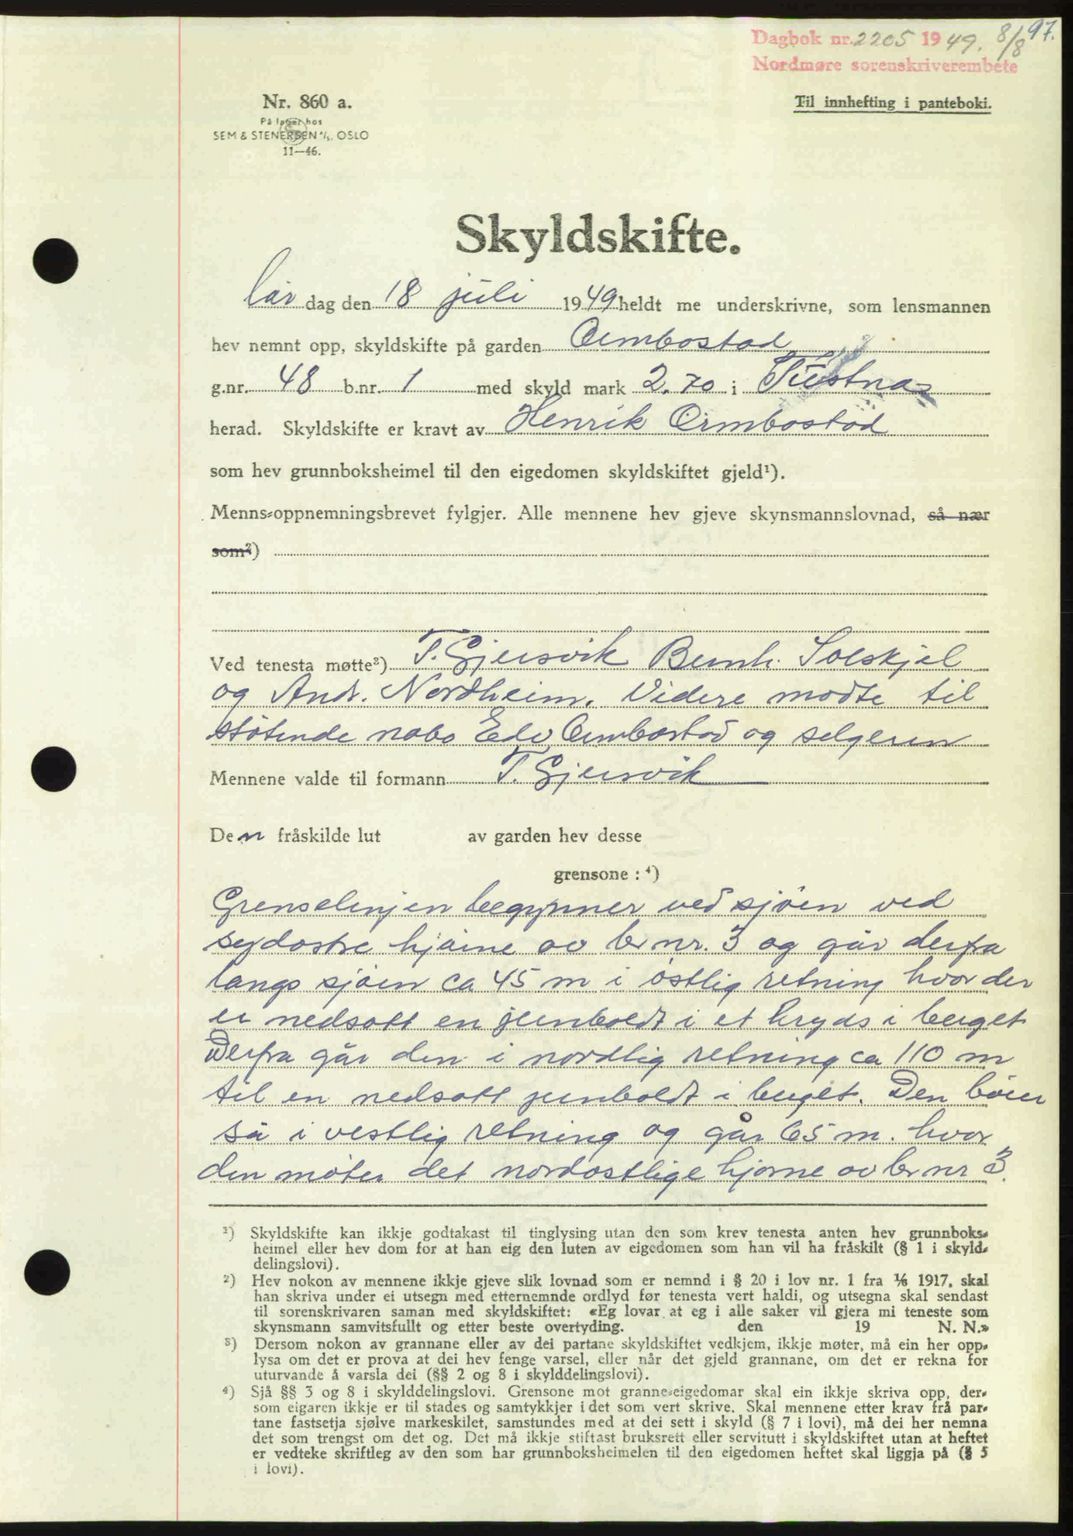 Dagbok nr. 2205 1949. 8/8 97.
Nordmøre sorenskriverembete
Nr. 860 a.
På lager hos
SEM & STENERSEN A/S, OSLO
11—46.
Til innhefting i panteboki.
Skyldskifte.
Lør dag den 18 juli 1949 heldt me underskrivne, som lensmannen
hev nemnt opp, skyldskifte på garden Ormbostad
g.nr. 48 b.nr. 1 med skyld mark 2.70 i Tustna
herad. Skyldskifte er kravt av Henrik Ormbostad
som hev grunnboksheimel til den eigedomen skyldskiftet gjeld¹).
Menns-oppnemningsbrevet fylgjer. Alle mennene hev gjeve skynsmannslovnad, så nær
som²)
Ved tenesta møtte³) T. Gjersvik Bernh. Solskjel
og Andr. Nordheim. Videre møtte til
støtende nabo Edv Ormbostad og selgeren
Mennene valde til formann T. Gjersvik
Den fråskilde lut av garden hev desse
grensone : ⁴)
Grenselinjen begynner ved sjöen ved
sydøstre hjörne av br nr. 3 og går derfra
langs sjöen ca 45 m i östlig retning hvor der
er nedsatt en jernboldt i et kryds i berget
Derfra går den i nordlig retning ca 110 m
til en nedsatt jernboldt i berget. Den böier
så i vestlig retning og går 65 m. hvor
den møter det nordöstlige hjörne av br nr 3.
¹) Skyldskifte kan ikkje godtakast til tinglysing utan den som krev tenesta anten hev grunnboks-
heimel eller hev dom for at han eig den luten av eigedomen som han vil ha fråskilt (§ 1 i skyld-
delingslovi).
²) Hev nokon av mennene ikkje gjeve slik lovnad som er nemnd i § 20 i lov nr. 1 fra 1/6 1917, skal
han skriva under ei utsegn med etternemnde ordlyd før tenesta vert haldi, og utsegna skal sendast
til sorenskrivaren saman med skyldskiftet: «Eg lovar at eg i alle saker vil gjera mi teneste som
skynsmann samvitsfullt og etter beste overtyding. den 19 N. N.»
³) Dersom nokon av grannane eller av dei partane skyldskiftet vedkjem, ikkje møter, må ein her opp-
lysa om det er prova at dei hev fenge varsel, eller når det gjeld grannane, om det er rekna for
uturvande å varsla dei (§§ 2 og 8 i skylddelingslovi).
⁴) Sjå §§ 3 og 8 i skylddelingslovi. Grensone mot granne-eigedomar skal ein ikkje skriva opp, der-
som eigaren ikkje er til stades og samtykkjer i det som vert skrive. Skal mennene etter krav frå par-
tane fastsetja sjølve markeskilet, samstundes med at dei sett i skyld (§ 7 i lovi), må dei her nemna
det som trengst om det og. Det må ikkje stiftast bruksrett eller servitutt i skyldskiftet utan at heftet
er vedteke skriftleg av den som har grunnboksheimelen til den eigedomen heftet skal liggja på (§ 5
i lovi).